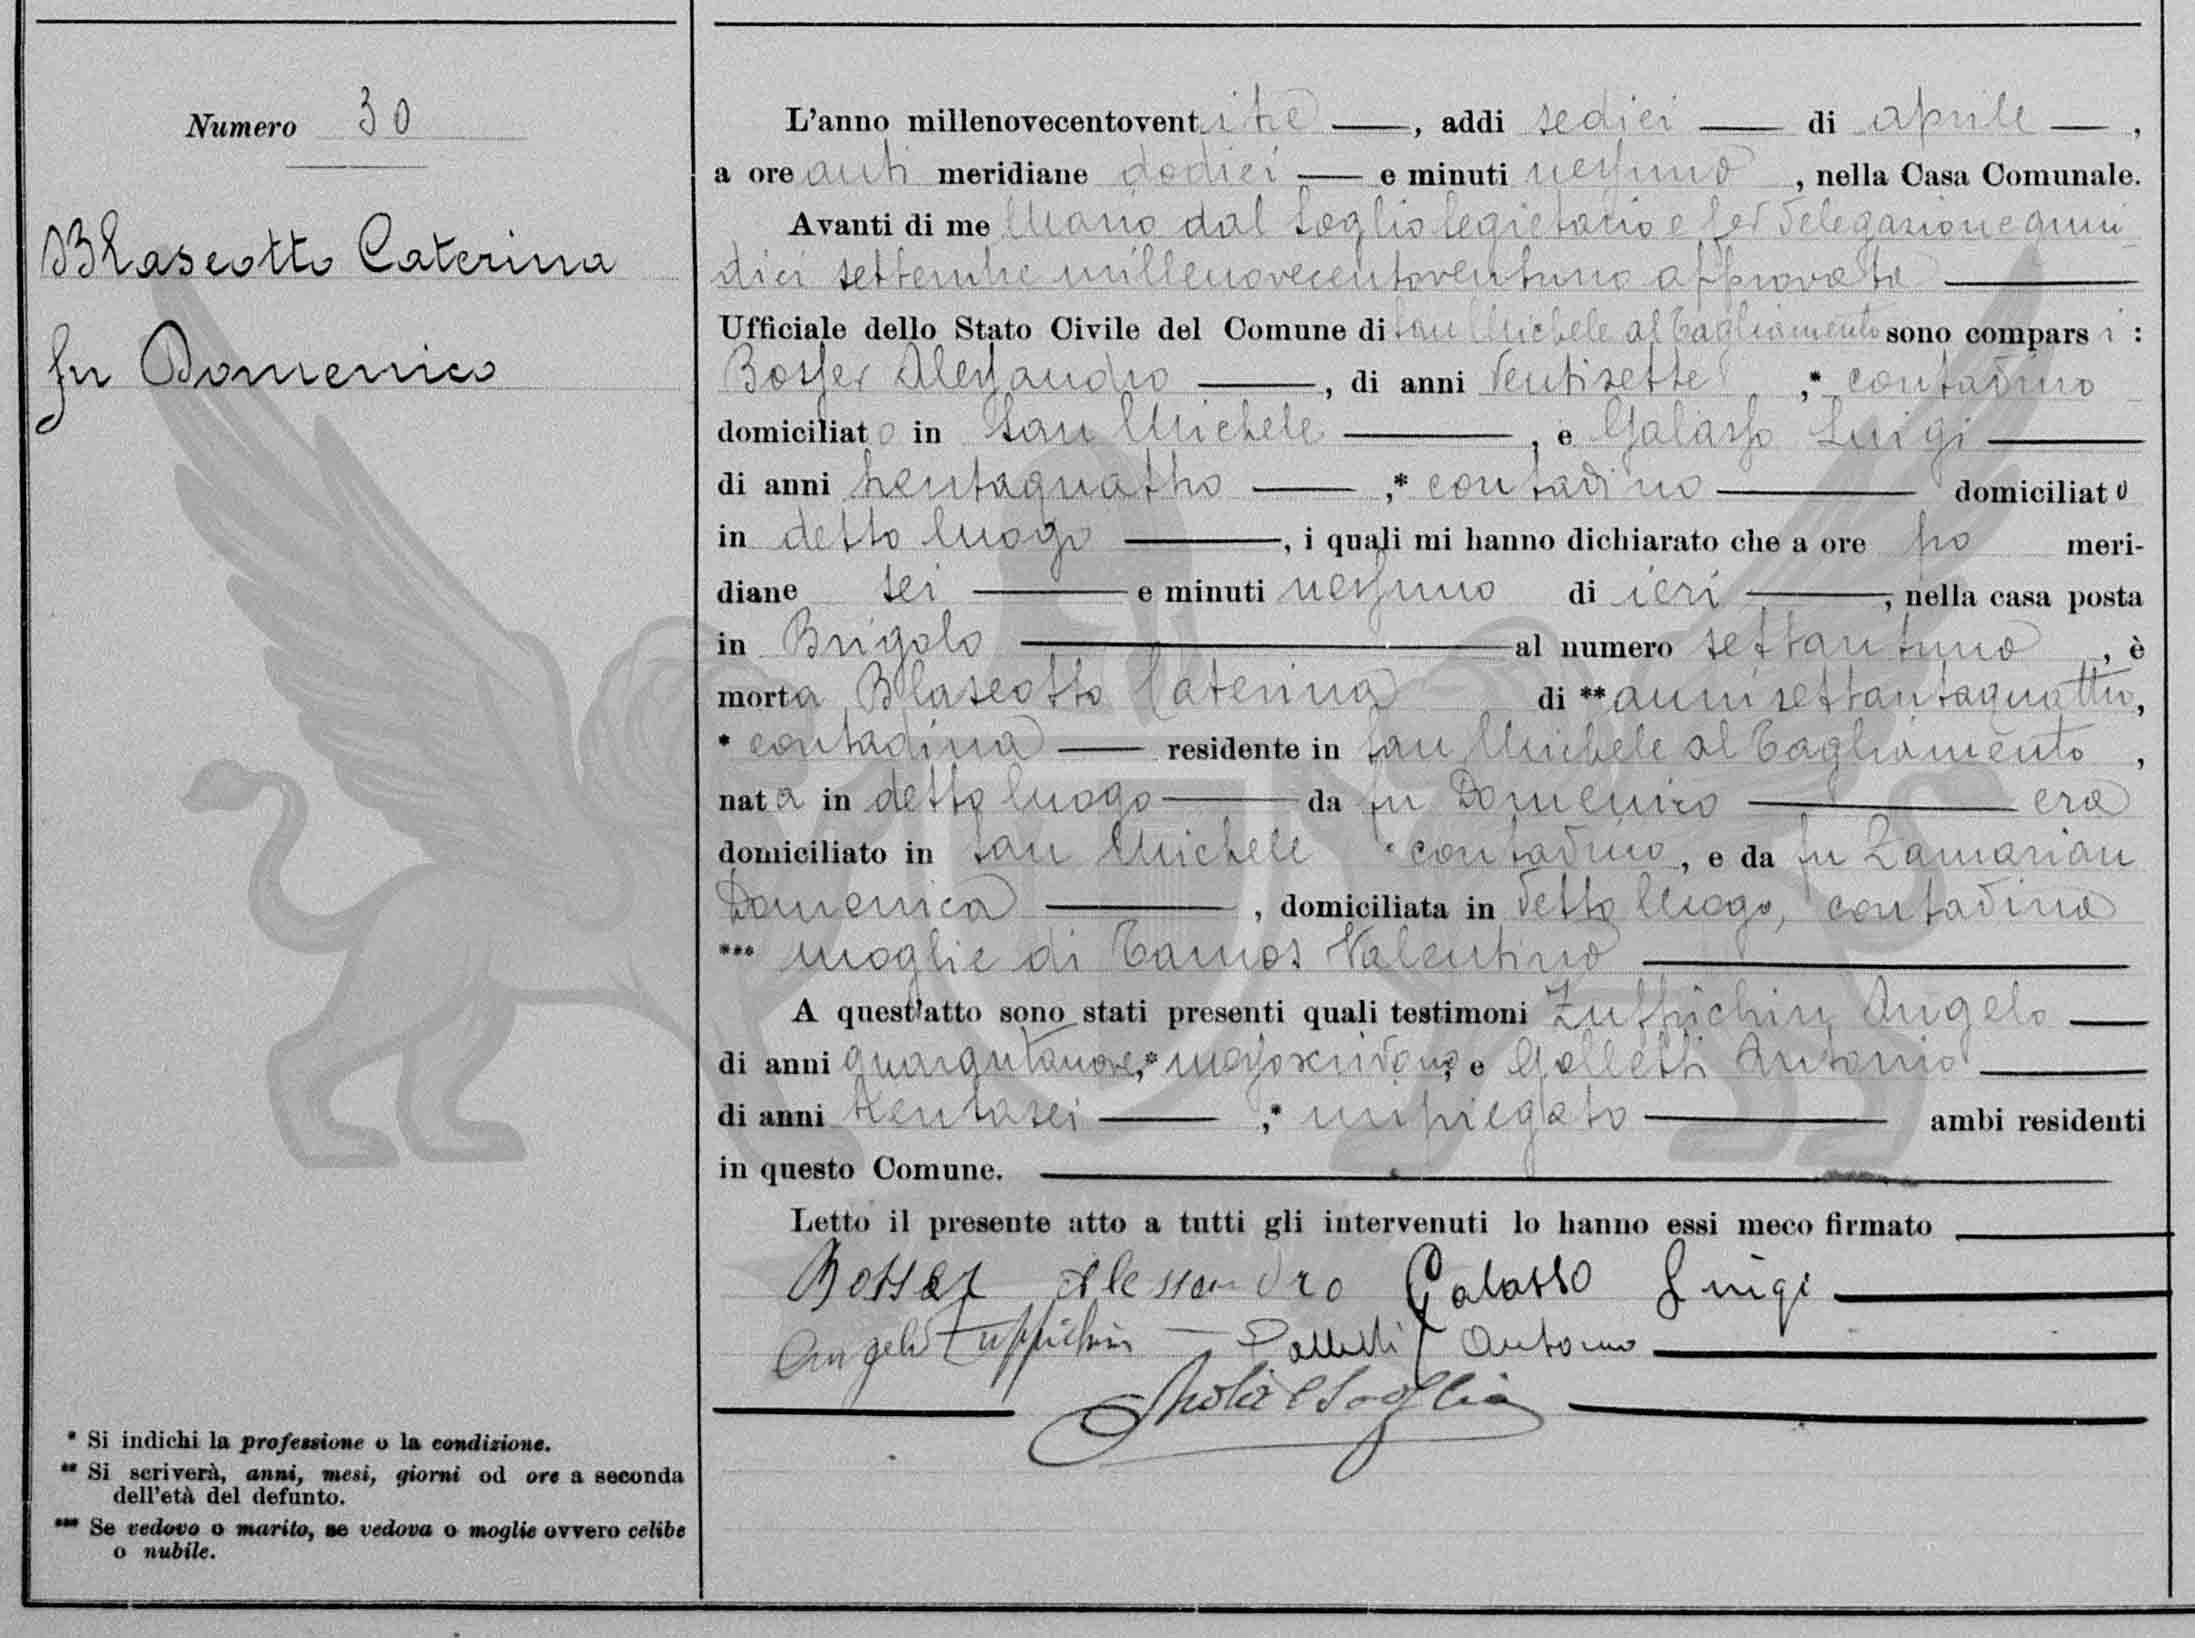 Numero 30
Blaseotto Caterina
fu Domenico
* Si indichi la professione o la condizione.
** Si scriverà, anni, mesi, giorni od ore a seconda
dell'età del defunto.
*** Se vedovo o marito, se vedova o moglie ovvero celibe
o nubile.
L'anno millenovecentoventitre, addi sedici di aprile,
a ore anti meridiane dodici e minuti nessuno, nella Casa Comunale.
Avanti di me Mario dal Soglio Segretario e per delegazione quin
dici settembre millenovecentoventuno approvata
Ufficiale dello Stato Civile del Comune di San Michele al Tagliamento sono comparsi :
Bosser Alessandro, di anni ventisette,* contadino
domiciliato in San Michele, e Galasso Luigi
di anni trentaquattro,* contadino domiciliato
in detto luogo, i quali mi hanno dichiarato che a ore po meri-
diane sei e minuti nessuno di ieri, nella casa posta
in Brigolo al numero settantuno, è
morta Blaseotto Caterina di ** anni settantaquattro,
* contadina residente in San Michele al Tagliamento,
nata in detto luogo da fu Domenico era
domiciliato in San Michele * contadino, e da fu Zamarian
Domenica, domiciliata in detto luogo, contadina
*** moglie di Tamos Valentino
A quest'atto sono stati presenti quali testimoni Zuppichin Angelo
di anni quarantanove,* messo scrivano, e Galletti Antonio
di anni trentasei,* impiegato ambi residenti
in questo Comune.
Letto il presente atto a tutti gli intervenuti lo hanno essi meco firmato
Bosser Alessandro Galasso Luigi
Angelo Zuppichin Antonio